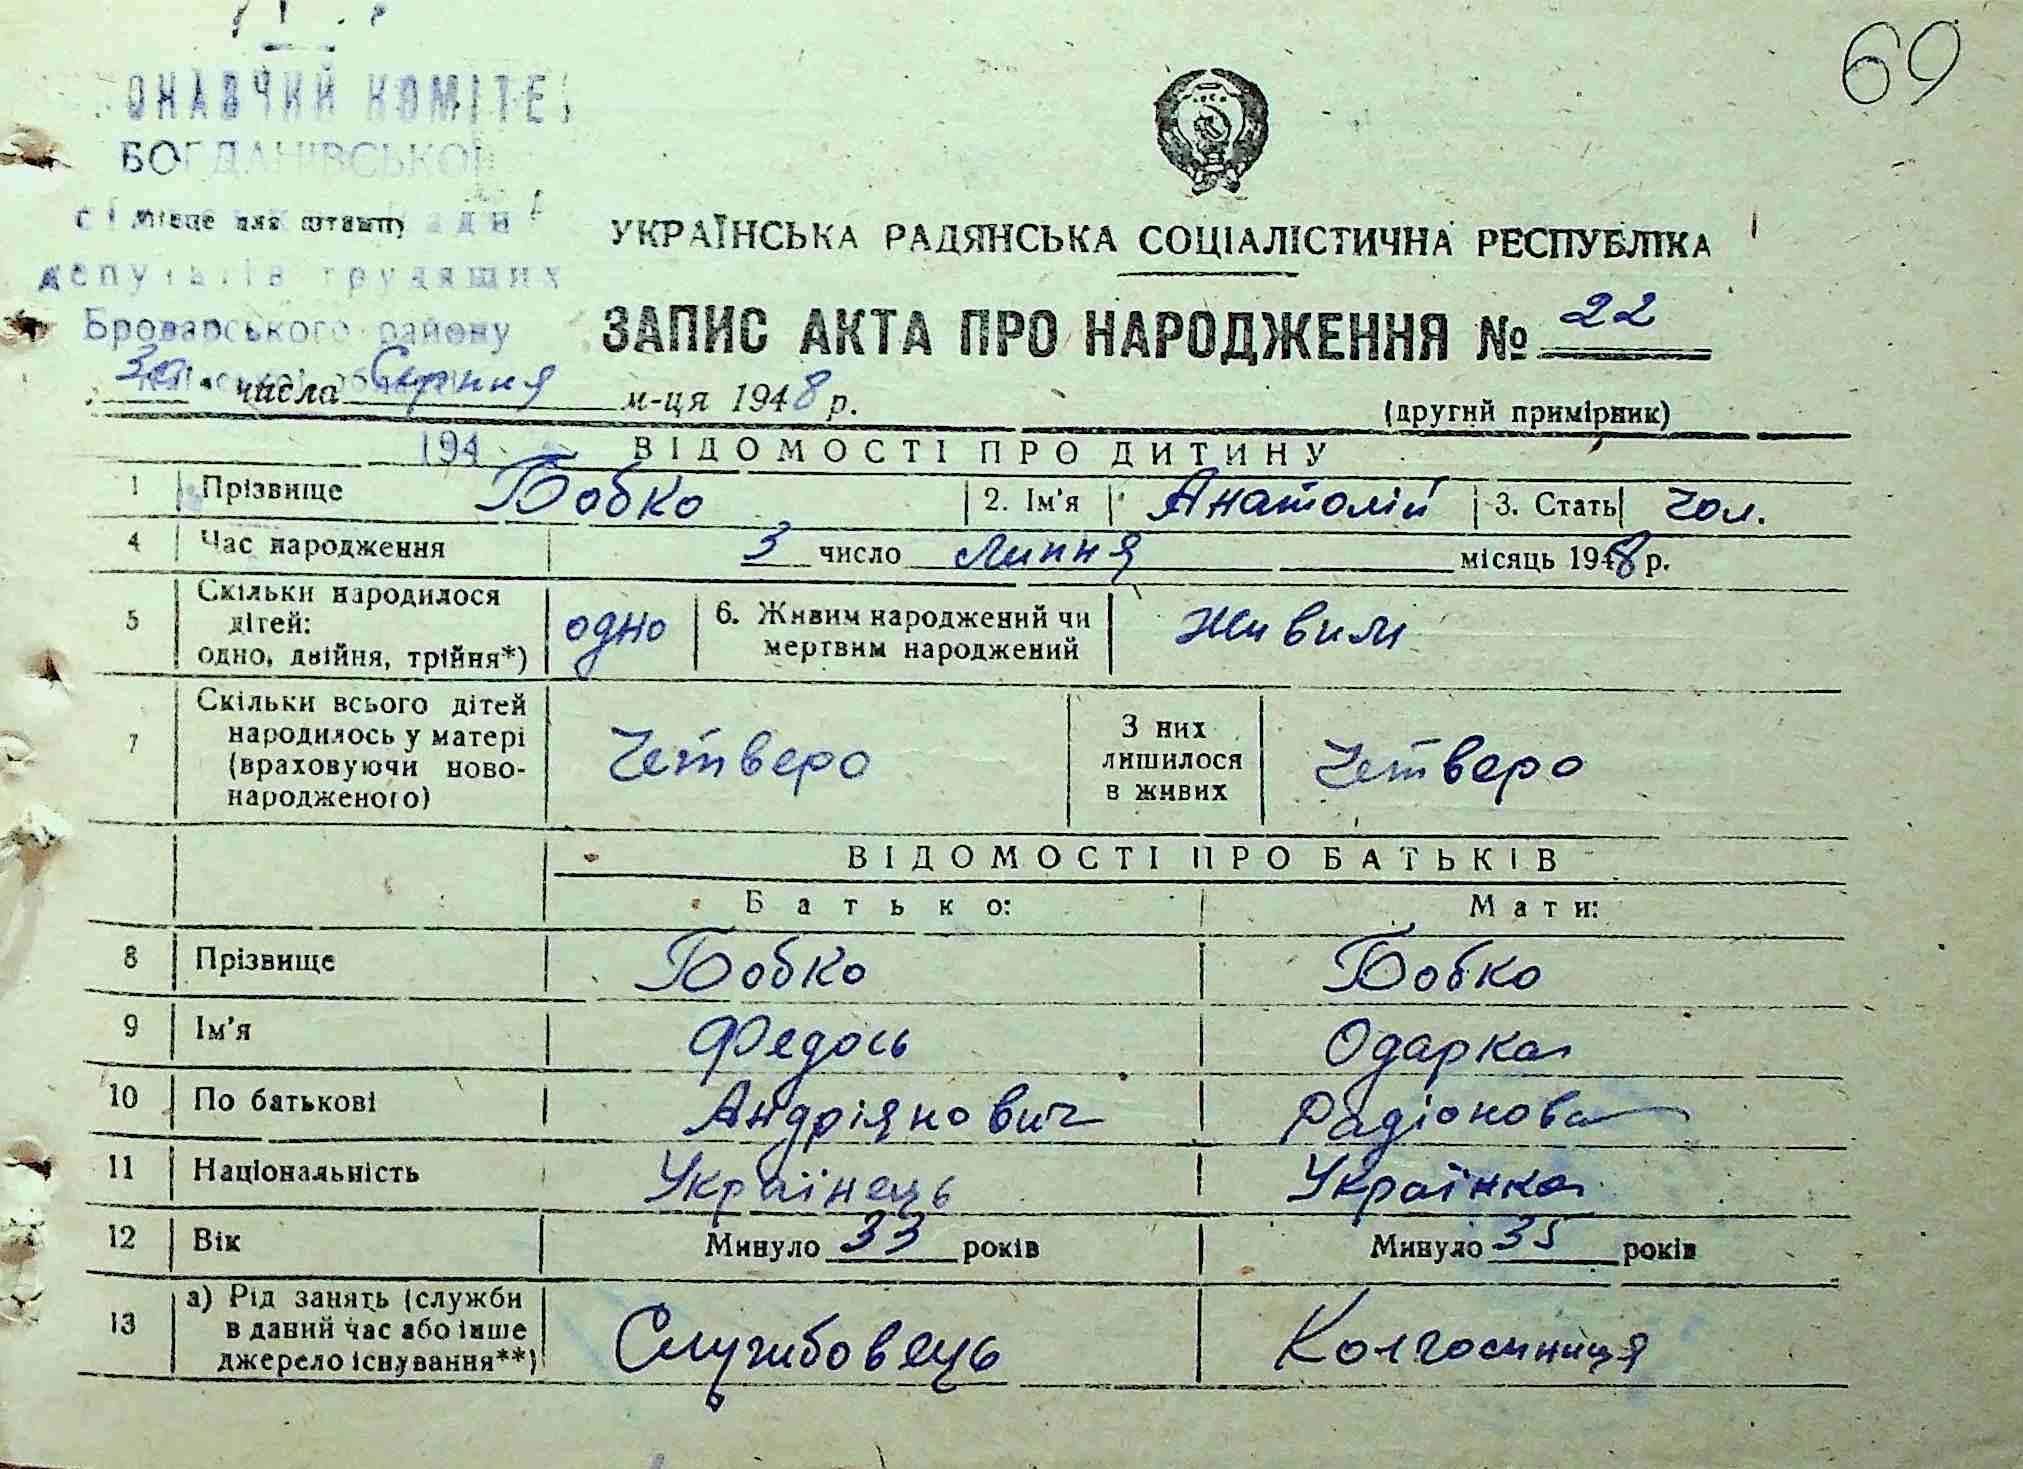 69
ОНАВЧИЙ КОМІТЕ
БОГДАНІВСЬКОЇ
Місце для штампу
депутатів трудящих
Броварського району
УКРАЇНСЬКА РАДЯНСЬКА СОЦІАЛІСТИЧНА РЕСПУБЛІКА
ЗАПИС АКТА ПРО НАРОДЖЕННЯ № 22
30 числа Серпня м-ця 1948 р.
(другий примірник)
194
ВІДОМОСТІ ПРО ДИТИНУ
1 Прізвище Бобко 2. Ім'я Анатолій 3. Стать чол.
4 Час народження 3 число Липня місяць 1948 р.
5 Скільки народилося дітей: одно, двійня, трійня*) одно 6. Живим народжений чи мертвим народжений Живим
7 Скільки всього дітей народилось у матері (враховуючи ново-народженого) Четверо З них лишилося в живих Четверо
ВІДОМОСТІ ПРО БАТЬКІВ
Батько: Мати:
8 Прізвище Бобко Бобко
9 Ім'я Федось Одарка
10 По батькові Андріянович Радіонова
11 Національність Українець Українка
12 Вік Минуло 33 років Минуло 35 років
13 а) Рід занять (служби в даний час або інше джерело існування**) Службовець Колгоспниця